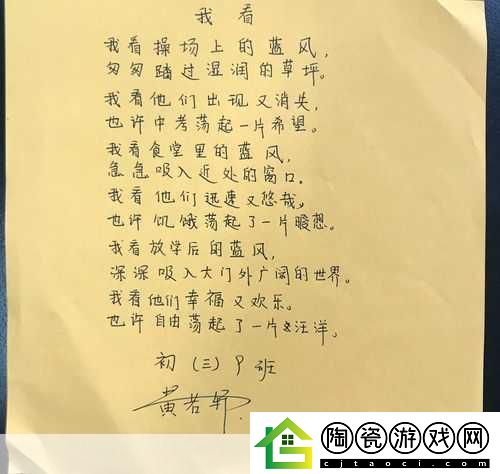 我看
我看操场上的蓝风，
匆匆踏过湿润的草坪。
我看他们出现又消失，
也许中考荡起一片希望。
我看食堂里的蓝风，
急急吸入近处的窗口。
我看他们迅速又悠哉。
也许饥饿荡起了一片暖想。
我看放学后的蓝风，
深深吸入大门外广阔的世界。
我看他们幸福又欢乐。
也许自由荡起了一片汪洋。
初（三）9班
黄若轩
陶瓷游戏网
cjtaoci.com